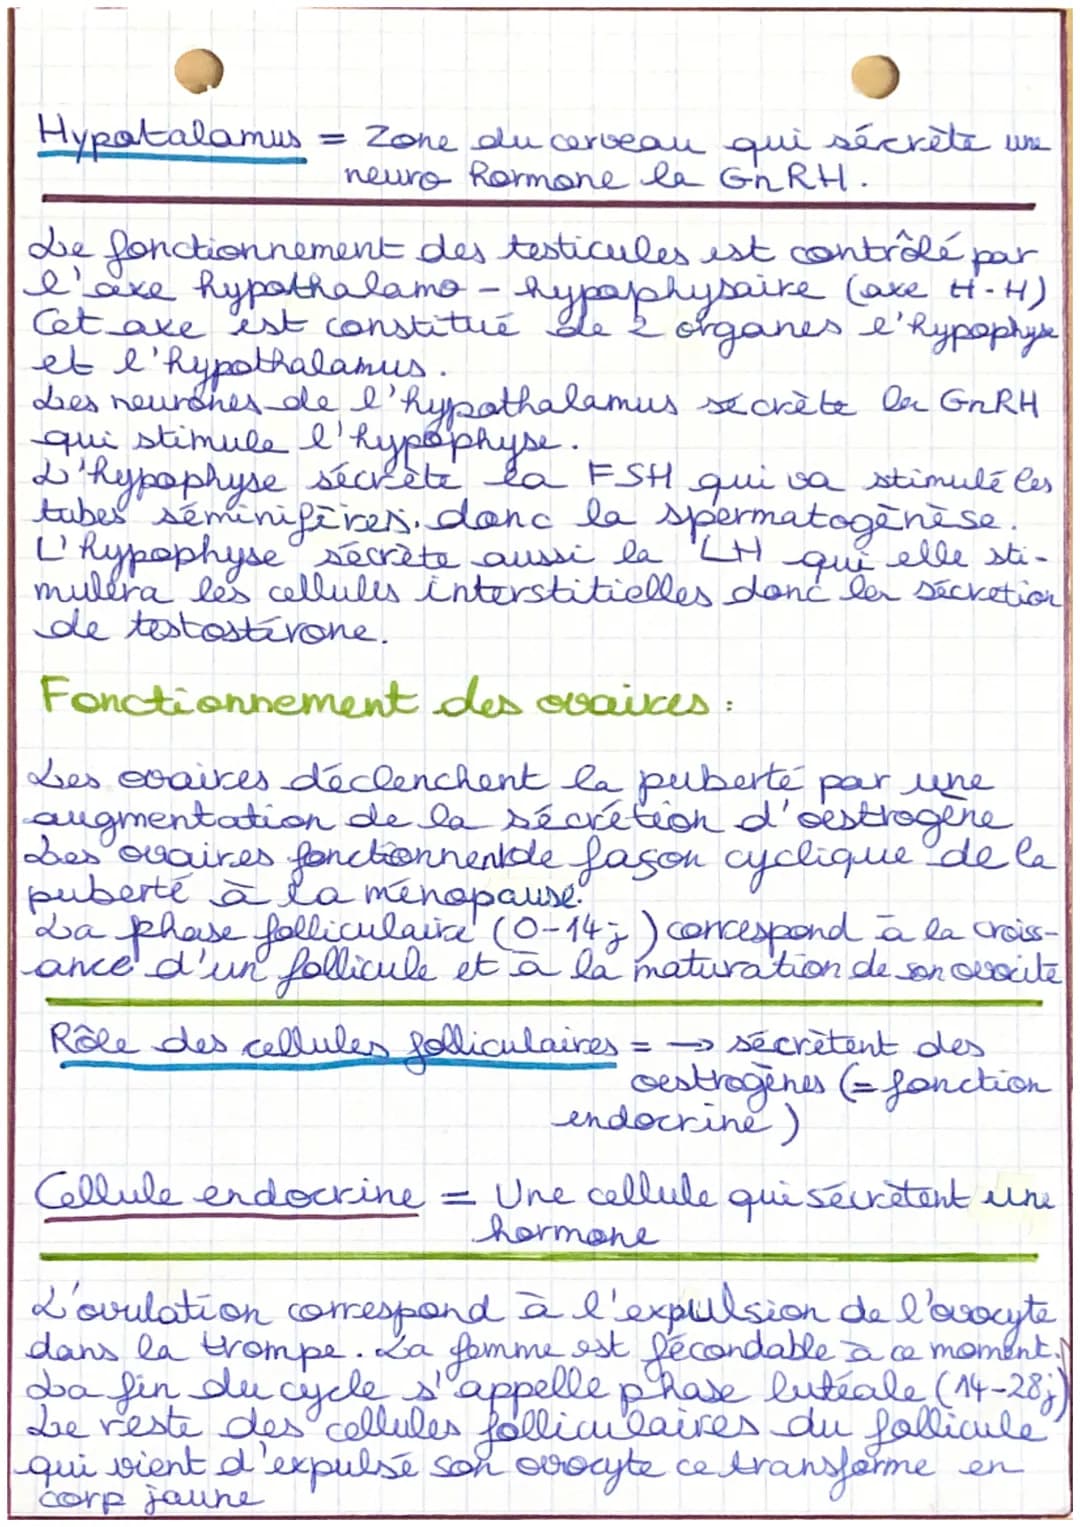 Hypotalamus = Zone du cerveau qui sécrète une
neuro hormone la GnRH.
Le fonctionnement des testicules est contrôlé par
l'axe hypothalamo-hypophysaire (axe H-H)
Cet axe est constitué de 2 organes l'hypophyse
et l'hypothalamus.
Les neurones de l'hypothalamus secrète la GnRH
qui stimule l'hypophyse.
L'hypophyse sécrète la FSH qui va stimulé les
tubes séminifères, donc la spermatogènèse.
L'hypophyse sécrète aussi la LH qui elle sti-
mulera les cellules interstitielles donc la sécretion
de testostérone.
Fonctionnement des ovaires :
Les ovaires déclenchent la puberté par une
augmentation de la sécrétion d'oestrogène
Les ovaires fonctionnent de façon cyclique de la
puberté à la ménopause.
La phase folliculaire (0-14j) correspond à la crois-
ance d'un follicule et à la maturation de son ovocite
Rôle des cellules folliculaires = → sécrètent des
oestrogènes (= fonction
endocrine)
Cellule endocrine = Une cellule qui sécrètent une
hormone
L'ovulation correspond à l'expulsion de l'ovocyte
dans la trompe. La femme est fécondable à ce moment.
La fin du cycle s'appelle phase lutéale (14-28j)
Le reste des cellules folliculaires du follicule
qui vient d'expulsé son ovocyte ce transforme en
corp jaune